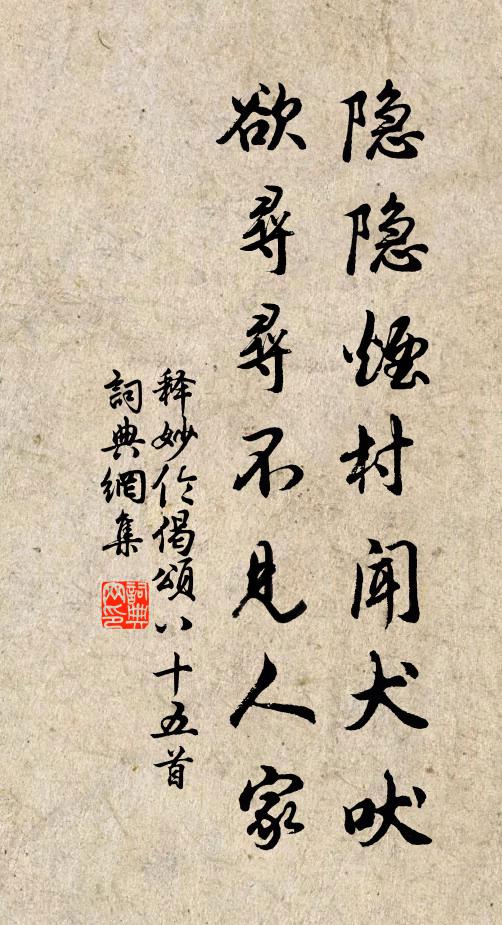 隐隐煙村闻犬吠
欲尋尋不見人家
释妙伦偈頌八十五首
詞典網集
詞典网印